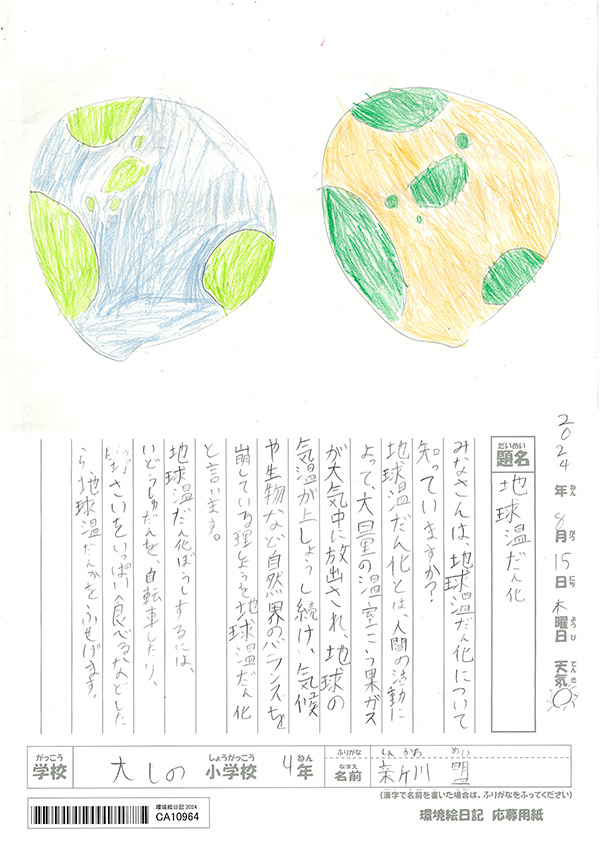 2024年ねん8月がつ15日にち木曜日ようび 天気てんき
だいめい
題名
地球温だん化
みなさんは、地球温だん化について
知っていますか?
地球温だん化とは、人間の活動に
よって、大量の温室こう果ガス
が大気中に放出され、地球の
気温が上しょうし続け、気候
や生物など自然界のバランスを
崩している現しょうを地球温だん化
と言います。
地球温だん化ぼうしするには、
いどうしゅだんを、自転車したり、
さいをいっぱい食べるなどした
ら地球温だんかをふせげます。
がっこう しょうがっこう ねん
学校 大しの 小学校 4年
ふりがな しんかわ めい
なまえ
名前 川 盟
(漢字で名前を書いた場合は、ふりがなをふってください)
環境絵日記2024
CA10964
環境絵日記 応募用紙